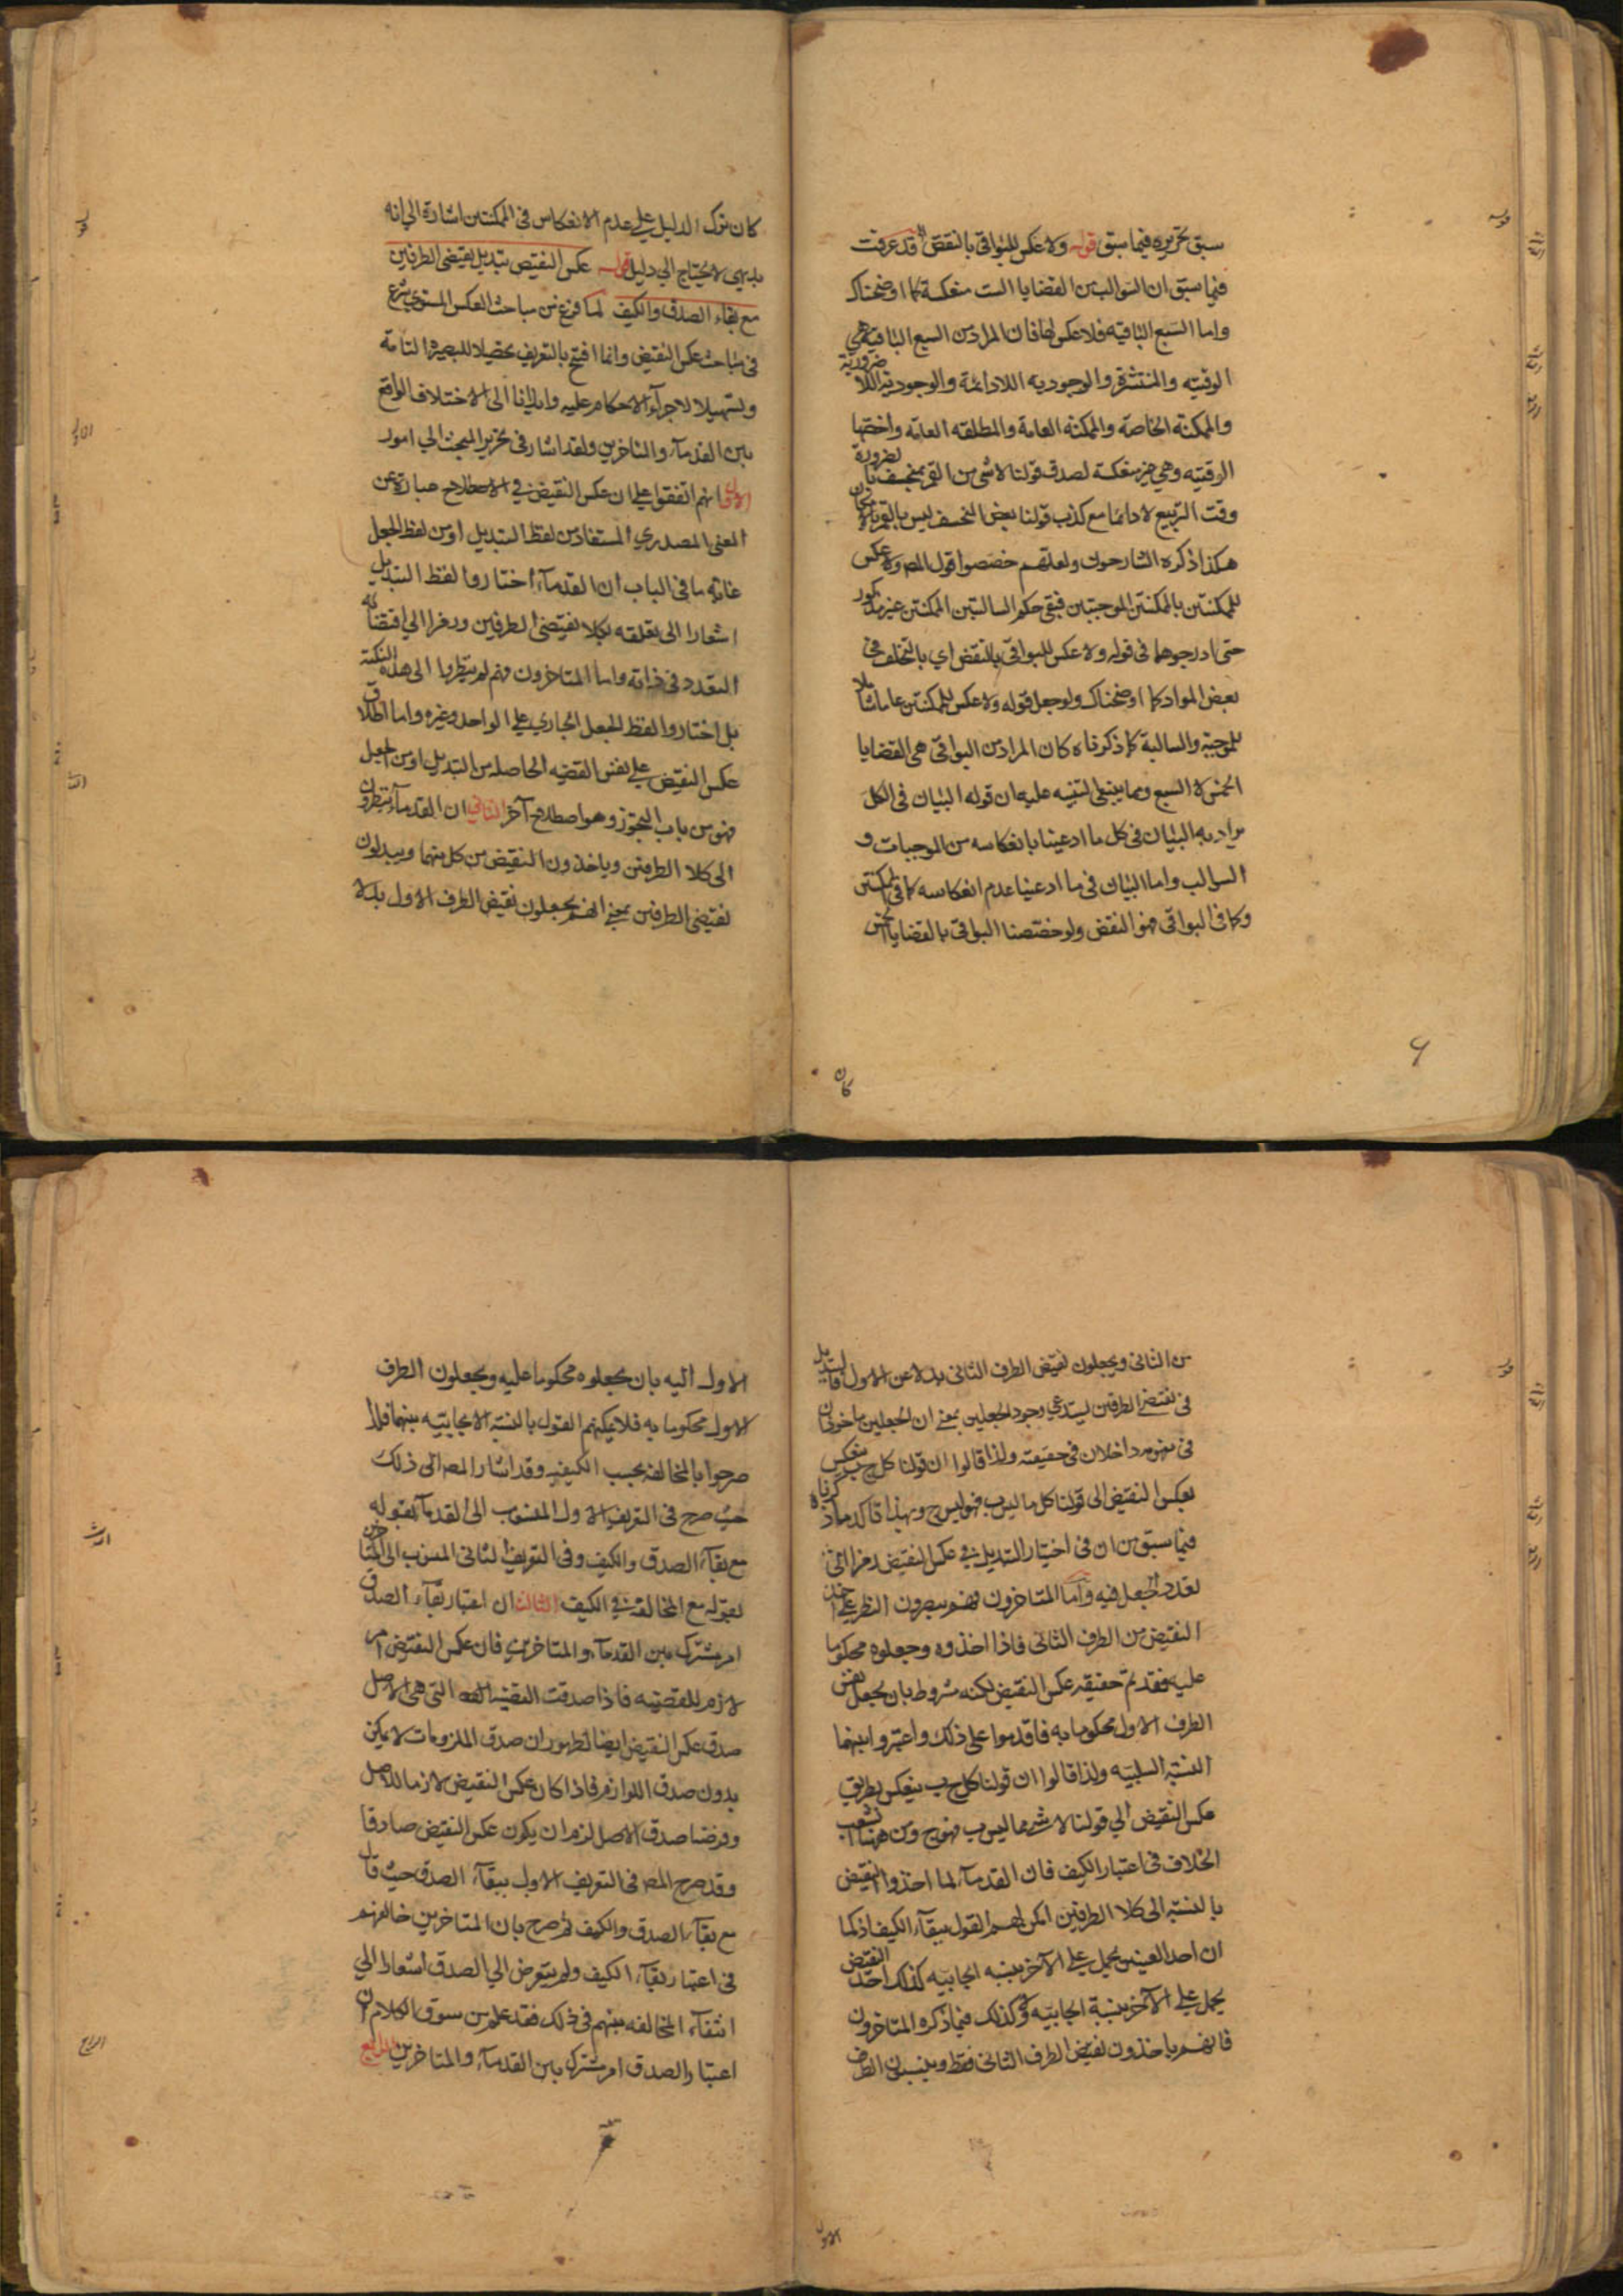 سبق تحريره فيما سبق قوله ولا عكس للبواقي بالنقض قد عرفت
فيما سبق ان السوالب من القضايا الست منعكسة كما اوضحناك
واما السبع الباقية فلا عكس لها فان المراد من السبع الباقية هي
الوقتيه والمنتشرة والوجوديه اللادائمة والوجودية اللا ضرورية
والممكنة الخاصة والممكنة العامة والمطلقه العامه واخصها
الوقتيه وهي غير منعكسة لصدق قولنا لا شئ من القمر بمنخسف بالضرورة
وقت التربيع لا دائما مع كذب قولنا بعض المنخسف ليس بالقمر بالامكان
هكذا ذكره الشارحون ولعلهم خصصوا قول المص ولا عكس
للممكنتين بالممكنتين الموجبتين فبقي حكم السالبتين الممكنتين غير مذكور
حتى ادرجوهما في قوله ولا عكس للبواقي بالنقض اي بالتخلف في
بعض المواد كما اوضحناك ولو جعل قوله ولا عكس للممكنتين عاما شاملا
للموجبة والسالبة كما ذكرناه كان المراد من البواقي هي القضايا
الخمس لا السبع ومما ينبغي التنبيه عليه ان قوله البيان في الكل
يراد به البيان في كل ما ادعينا بانعكاسه من الموجبات و
السوالب واما البيان في ما ادعينا عدم انعكاسه كما في الممكنتين
وكما في البواقي فهو النقض ولو خصصنا البواقي بالقضايا الخمس
كان
كان ترك الدليل على عدم الانعكاس في الممكنتين اشارة الى انه
بديهي لا يحتاج الى دليل قوله عكس النقيض تبديل نقيضي الطرفين
مع بقاء الصدق والكيف لما فرغ من مباحث العكس المستوي شرع
في مباحث عكس النقيض وانما افتتح بالتعريف تحصيلا للبصيرة التامة
وتسهيلا لاجراء الاحكام عليه وايذانا الى الاختلاف الواقع
بين القدماء والمتاخرين ولقد اشار في تحرير المبحث الى امور
الاول انهم اتفقوا على ان عكس النقيض في الاصطلاح عبارة عن
المعنى المصدري المستفاد من لفظ التبديل او من لفظ الجعل
غاية ما في الباب ان القدماء اختاروا لفظ التبديل
اشعارا الى تعلقه بكلا نقيضي الطرفين ورمزا الى اقتضائه
التعدد في ذاته واما المتاخرون فهم لم ينظروا الى هذه النكتة
بل اختاروا لفظ الجعل الجاري على الواحد وغيره واما اطلاق
عكس النقيض على نفس القضيه الحاصله من التبديل او من الجعل
فهو من باب التجوز وهو اصطلاح آخر الثاني ان القدماء ينظرون
الى كلا الطرفين وياخذون النقيض من كل منهما ويبدلون
نقيضي الطرفين بمعنى انهم يجعلون نقيض الطرف الاول بدلا
من الثاني ويجعلون نقيض الطرف الثاني بدلا عن الاول فالتبديل
في نقيضي الطرفين يستدعي وجود الجعلين بمعنى ان الجعلين ماخوذان
في مفهومه داخلان في حقيقته ولذا قالوا ان قولنا كل ج ب ينعكس
بعكس النقيض الى قولنا كل ما ليس ب فهو ليس ج وبهذا تاكد ما ذكرناه
فيما سبق من ان في اختيار التبديل في عكس النقيض رمزا الى
تعدد الجعل فيه واما المتاخرون فهم يبصرون النظر على اخذ
النقيض من الطرف الثاني فاذا اخذوه وجعلوه محكوما
عليه فقد تم حقيقه عكس النقيض لكنه مشروط بان يجعل نفس
الطرف الاول محكوما به فاقدموا على ذلك واعتبروا بينهما
النسبة السلبيه ولذا قالوا ان قولنا كل ج ب ينعكس بطريق
عكس النقيض الى قولنا لا شئ مما ليس ب فهو ج ومن ههنا انشعب
الخلاف في اعتبار الكيف فان القدماء لما اخذوا النقيض
بالنسبة الى كلا الطرفين امكن لهم القول ببقاء الكيف اذ كما
ان احد العينين يحمل على الآخر بنسبه ايجابيه كذلك احد النقيض
يحمل على الآخر بنسبة ايجابيه ولا كذلك فيما ذكره المتاخرون
فانهم ياخذون نقيض الطرف الثاني فقط وينسبون الطرف
الاول
الاول اليه بان يجعلوه محكوما عليه ويجعلون الطرف
الاول محكوما به فلا يمكنهم القول بالنسبة الايجابيه بينهما فلذا
صرحوا بالمخالفه بحسب الكيفيه وقد اشار المص الى ذلك
حيث صرح في التعريف الاول المنسوب الى القدماء بقوله
مع بقاء الصدق والكيف وفي التعريف الثاني المنسوب الى المتاخرين
بقوله مع المخالفة في الكيف الثالث ان اعتبار بقاء الصدق
امر مشترك بين القدماء والمتاخرين فان عكس النقيض امر
لازم للقضيه فاذا صدقت القضيه التي هي الاصل
صدق عكس النقيض ايضا لظهور ان صدق الملزومات لا يمكن
بدون صدق اللوازم فاذا كان عكس النقيض لازما للاصل
وفرضنا صدق الاصل لزم ان يكون عكس النقيض صادقا
وقد صرح المص في التعريف الاول ببقاء الصدق حيث قال
مع بقاء الصدق والكيف ثم صرح بان المتاخرين خالفهم
في اعتبار بقاء الكيف ولم يتعرض الى الصدق اشعارا الى
انتفاء المخالفه بينهم في ذلك فقد علم من سوق الكلام ان
اعتبار الصدق امر مشترك بين القدماء والمتاخرين الرابع